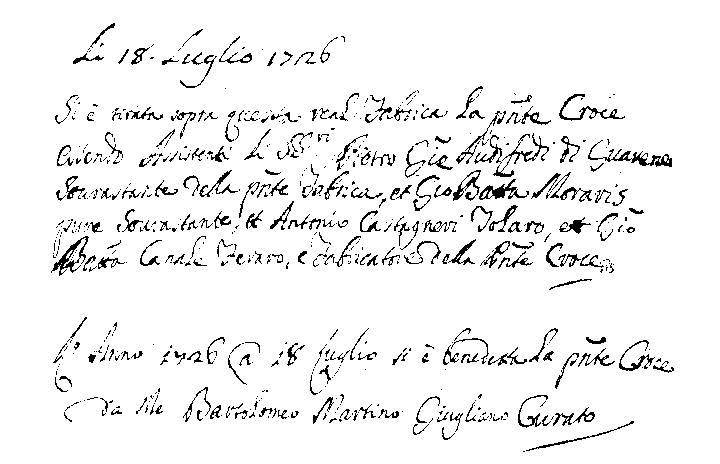 Li 18. Luglio 1726
Si è tirata sopra questa real Fabrica La pñte Croce
essendo Assistenti Li SS.ri Pietro Gio Audifredi di Guarene
Sourastante della pñte Fabrica, et Gio Batta Moravis
pure Sourastante, et Antonio Castagneri Tolaro, et Gio
Batta Canale Feraro, e Fabricatore della Pñte Croce
L'Anno 1726 a 18 Luglio si è benedetta La pñte Croce
da Me Bartolomeo Martino Giugliano Curato